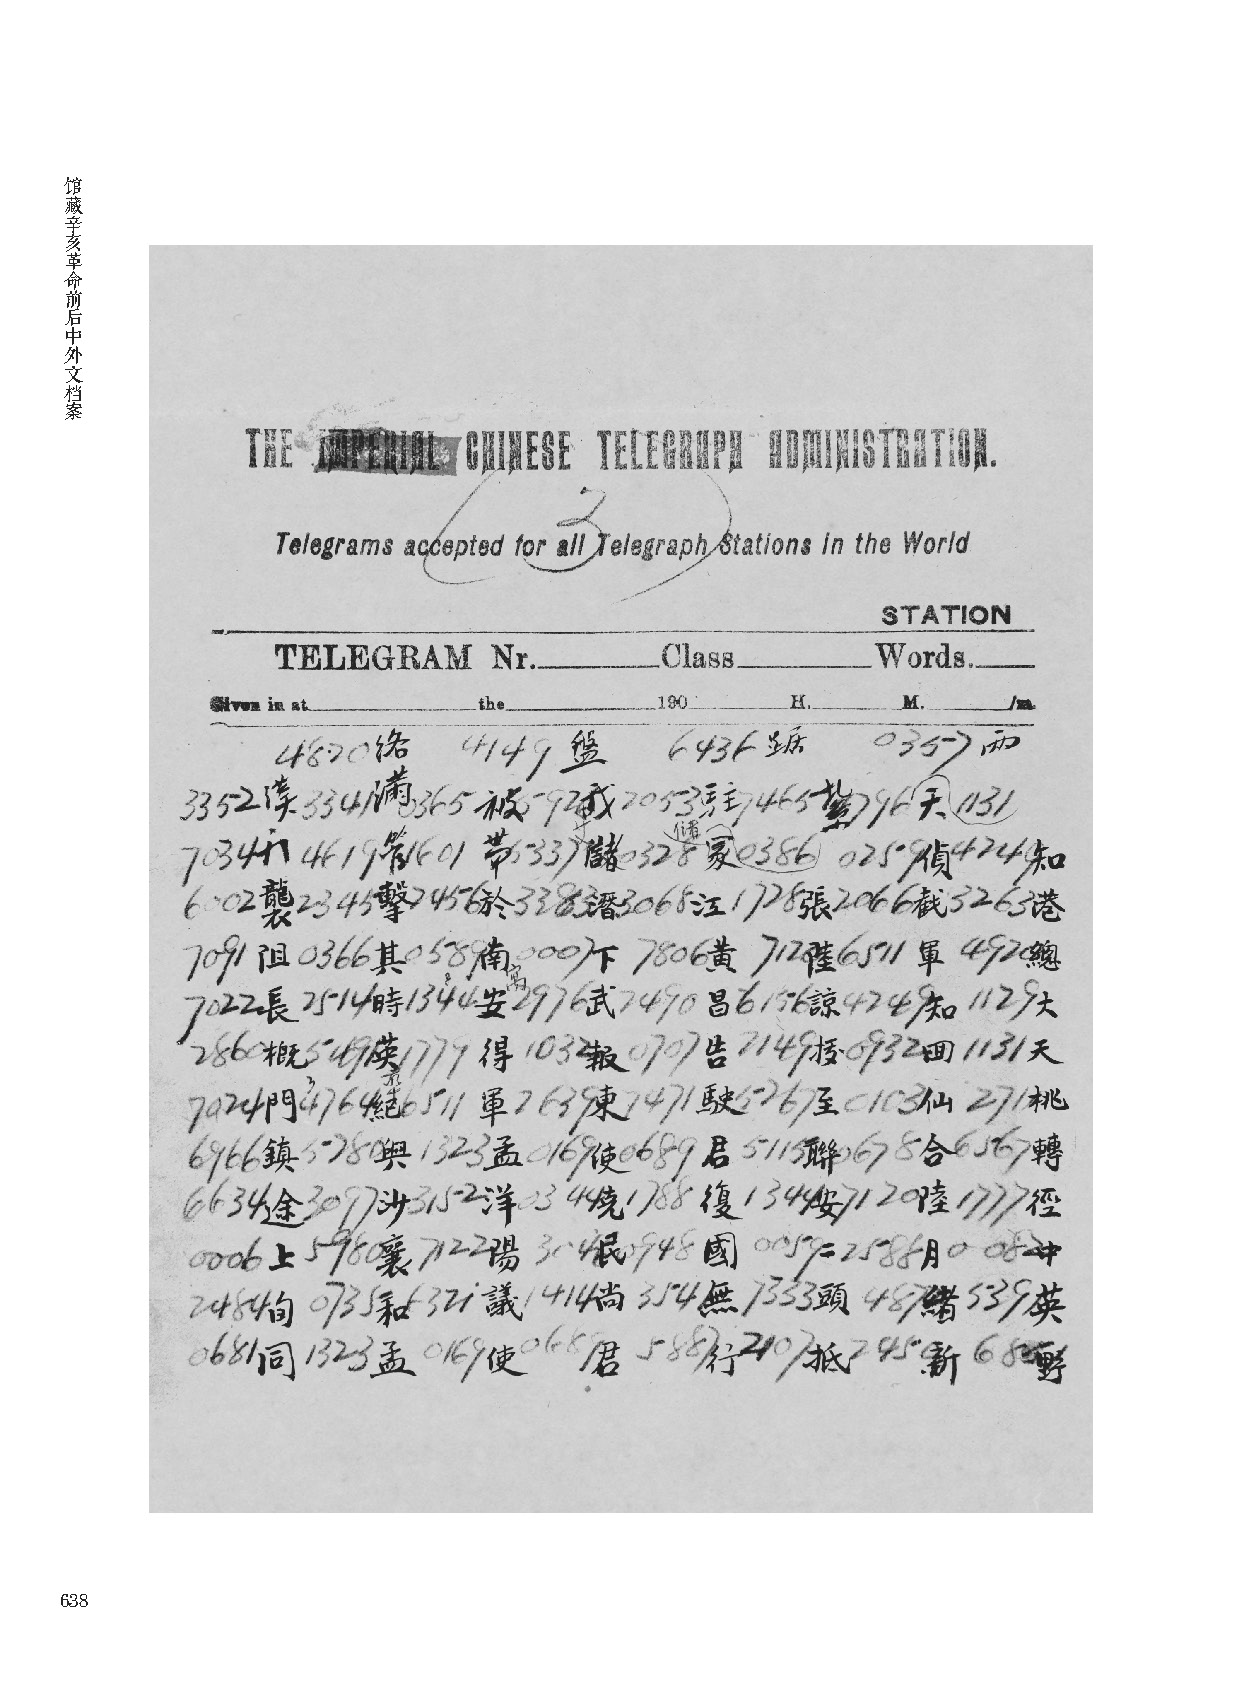 馆藏辛亥革命前后中外文档案
THE IMPERIAL CHINESE TELEGRAPH ADMINISTRATION.
2
Telegrams accepted for all Telegraph Stations in the World
STATION
TELEGRAM Nr. Class Words.
Given in at the 190 H. M. /m.
4820 絡 4149 盤 6436 踞 0357 兩
3352 漢 3341 滿 0365 被 我 2053 駐 7465 紮 天 1131
7034 4619 管 1601 帶 5337 儲 0328 冢 0386 0259 偵 4249 知
6002 襲 2345 擊 2456 於 3383 潛 3068 江 1728 張 2066 截 3263 港
7091 阻 0366 其 0589 南 0007 下 7806 黃 7128 陸 6511 軍 4920 總
7022 長 2514 時 1344 安 2976 武 2490 昌 6156 諒 4249 知 1129 大
2860 概 英 1779 得 1032 報 0707 告 2149 援 0932 四 1131 天
7024 門 4764 紀 6511 軍 2639 東 7471 駛 5267 至 0103 仙 271 桃
6966 鎮 5280 與 1323 孟 0169 使 0689 君 5115 聯 0678 合 6567 轉
6634 途 3097 沙 3152 洋 0344 繞 1788 復 1344 安 7120 陸 1777 徑
0006 上 5980 襄 7122 陽 3046 民 0948 國 0059 二 2588 月 中
2484 旬 0735 和 議 1414 尚 354 無 7333 頭 487 緒 539 英
0681 同 1323 孟 0169 使 0689 君 5887 行 2107 抵 2450 新 野
638